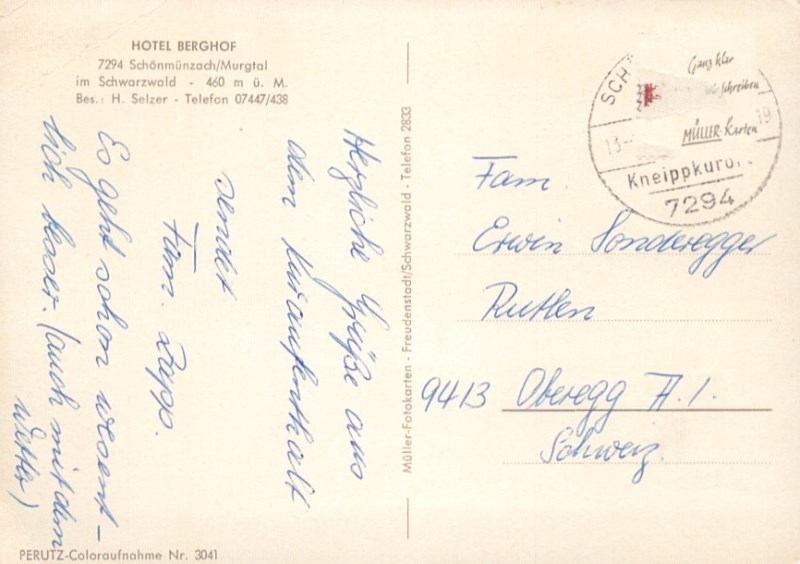 HOTEL BERGHOF
7294 Schönmünzach/Murgtal
im Schwarzwald - 460 m ü. M.
Bes.: H. Selzer - Telefon 07447/438
Herzliche Grüße aus
dem Kuraufenthalt
sendet
Fam. Zapp.
Es geht schon wesent-
lich besser. (auch mit dem
Wetter)
PERUTZ-Coloraufnahme Nr. 3041
Müller-Fotokarten - Freudenstadt/Schwarzwald - Telefon 2833
SCH
Ganz klar
schreiben
13
19
MÜLLER-Karten
Kneippkuro
7294
Fam.
Erwin Sonderegger
Rutlen
9413 Oberegg A. I.
Schweiz.